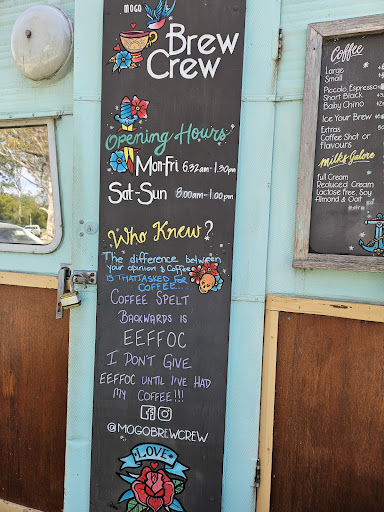 MOGO
Brew
Crew
Opening Hours
Mon-Fri 6:32am-1:30pm
Sat-Sun 8:00am-1:00pm
Who Knew?
The difference between
your opinion & Coffee
IS THAT I ASKED FOR
COFFEE...
COFFEE SPELT
BACKWARDS IS
EEFFOC
I DON'T GIVE
EEFFOC UNTIL I'VE HAD
MY COFFEE!!!
@MOGOBREWCREW
LOVE
Coffee
Large
Small
Piccolo, Espresso
Short Black
Baby Chino
Ice Your Brew
Extras
Coffee Shot or
flavours
Milks Galore
Full Cream
Reduced Cream
Lactose Free, Soy
Almond & Oat